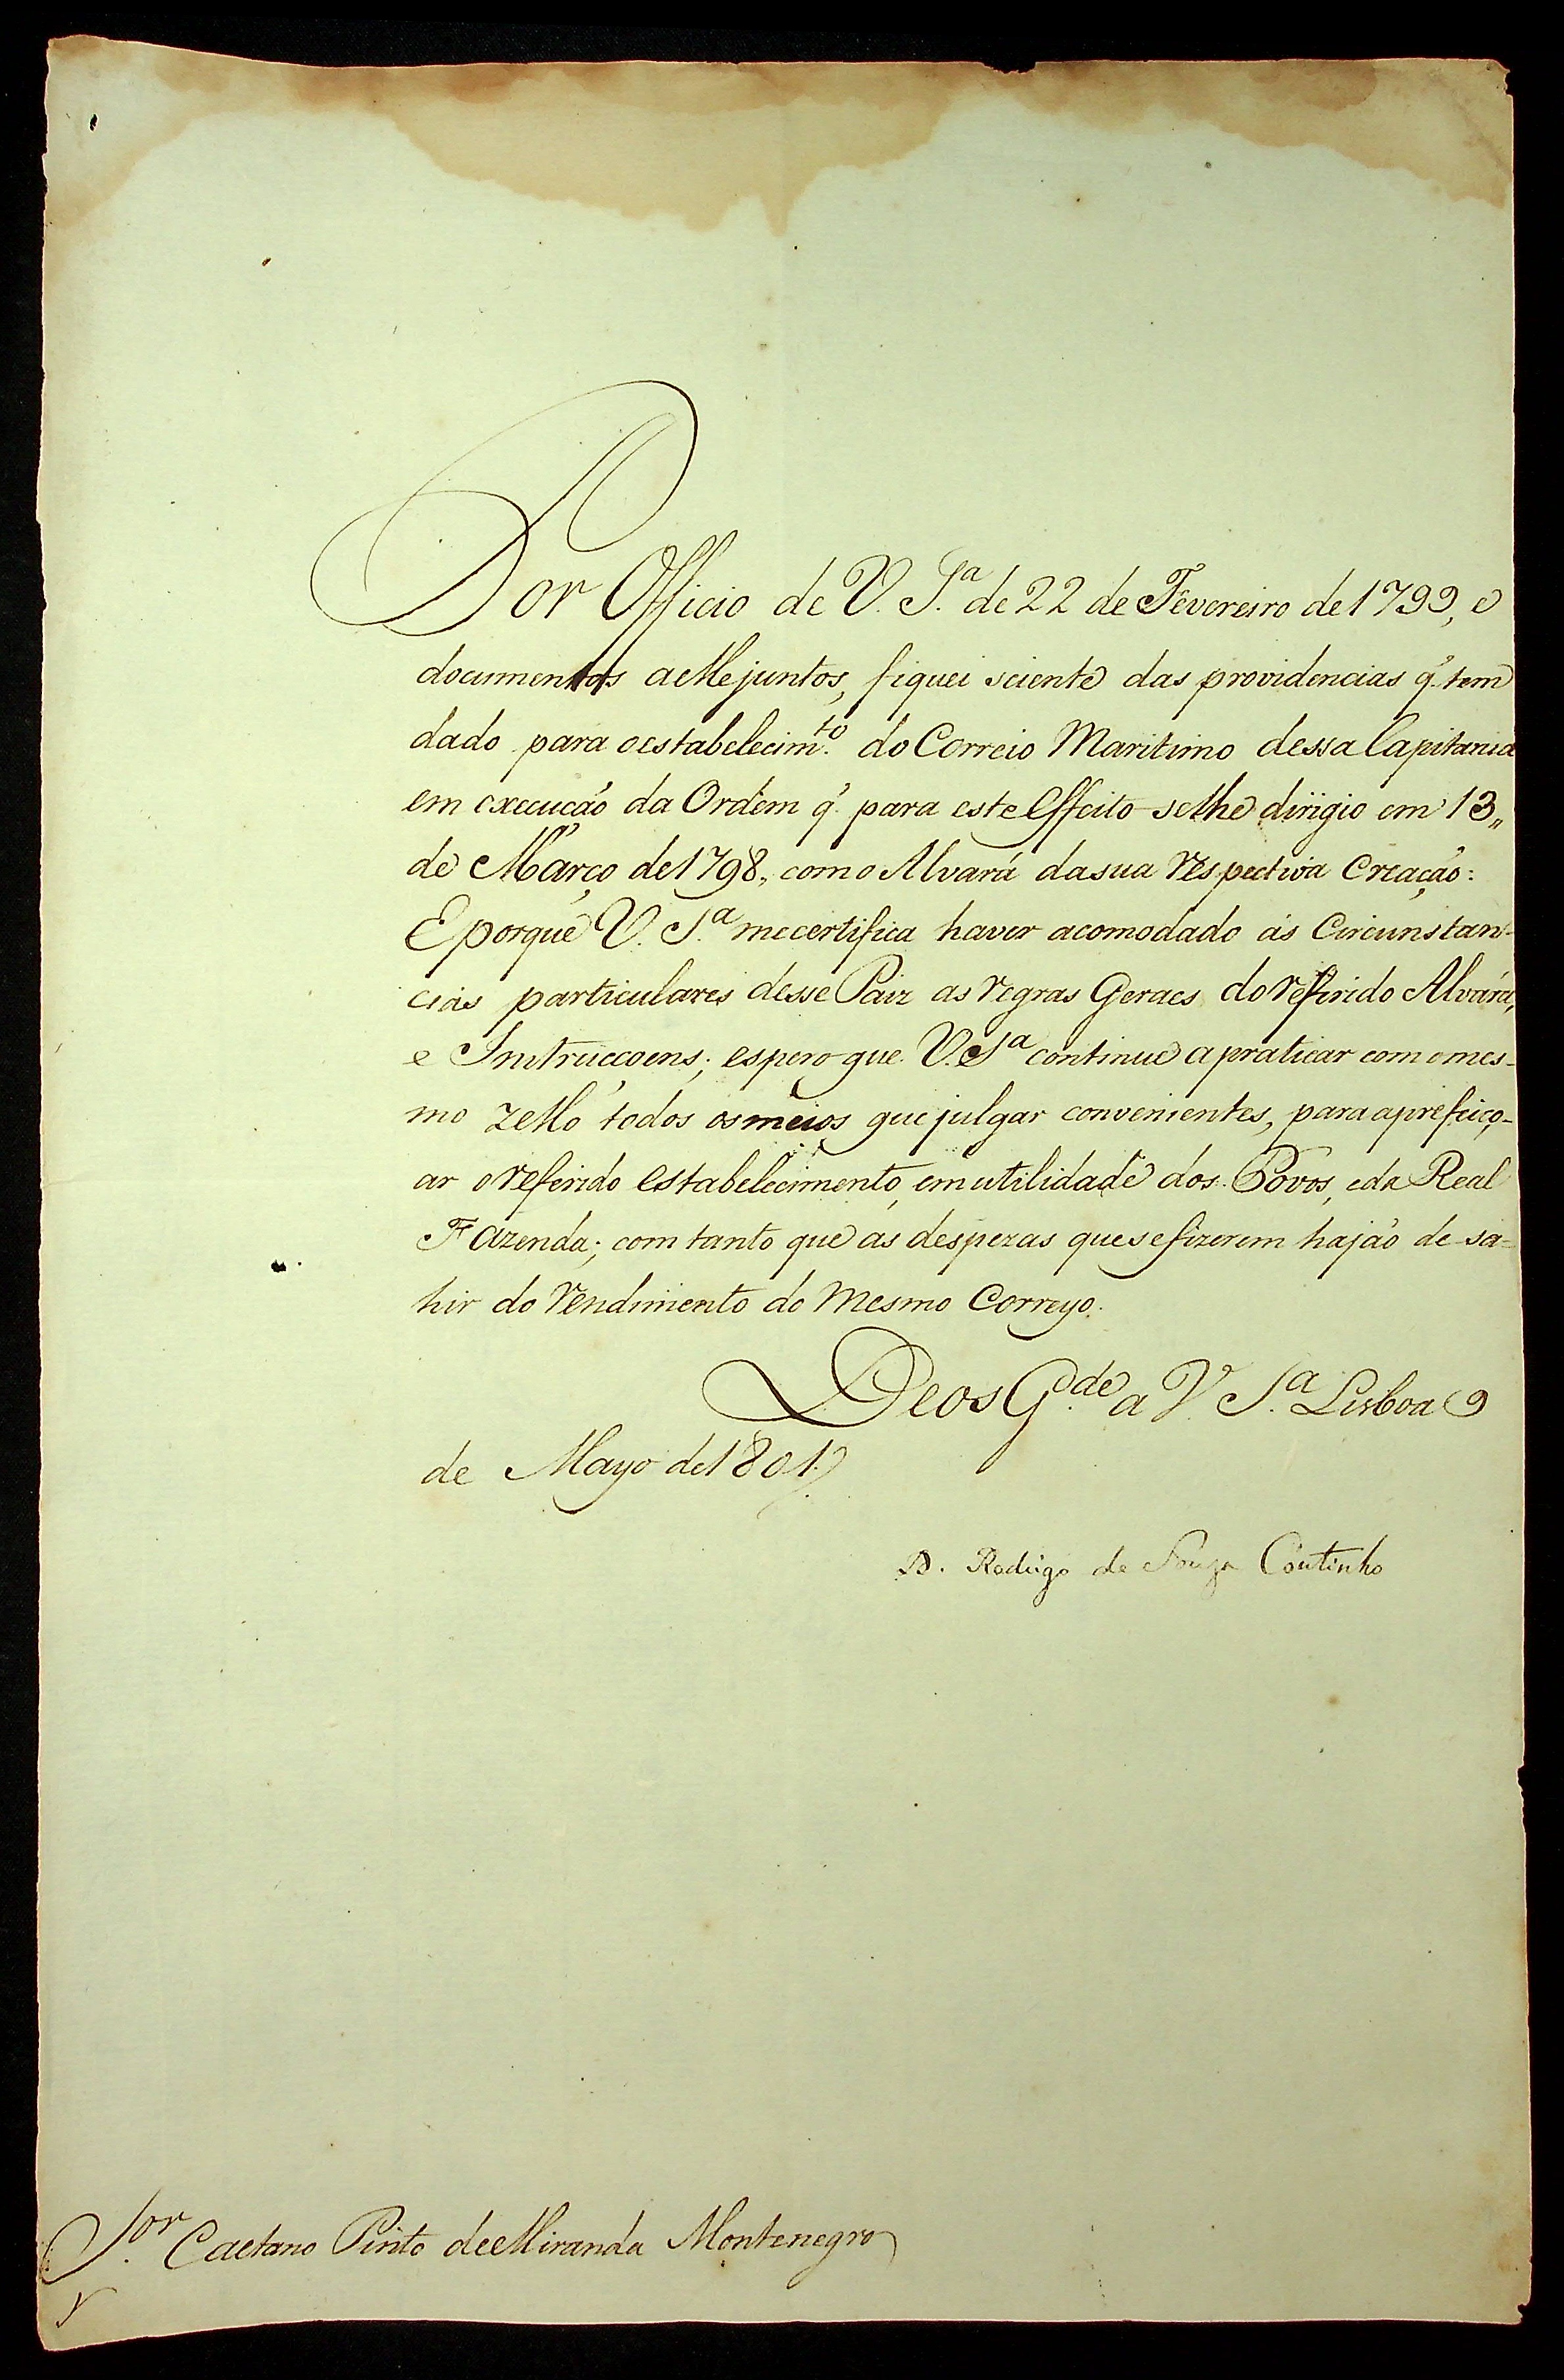 Por Officio de V. S.ª de 22 de Fevereiro de 1799, e
documentos a elle juntos, fiquei sciente das providencias q. tem
dado para o estabelecim.to do Correio Maritimo dessa Capitania
em execução da Ordem q. para este effeito se lhe dirigio em 13,,
de Março de 1798,, com o Alvará da sua respectiva Creação:
E porque V. S.ª me certifica haver acomodado ás Circunstan-
cias particulares desse Paiz as regras Geraes do referido Alvará,
e Instrucçoens; espero que V. S.ª continue a praticar com o mes-
mo zello todos os meios que julgar convenientes, para aprefeiço-
ar o referido estabelecimento, em utilidade dos Povos, e da Real
Fazenda; com tanto que as despezas que se fizerem hajão de sa-
hir do rendimento do mesmo Correyo.
Deos G.de a V. S.ª Lisboa 9
de Mayo de 1801.
D. Rodrigo de Souza Coutinho
S.or Caetano Pinto de Miranda Montenegro